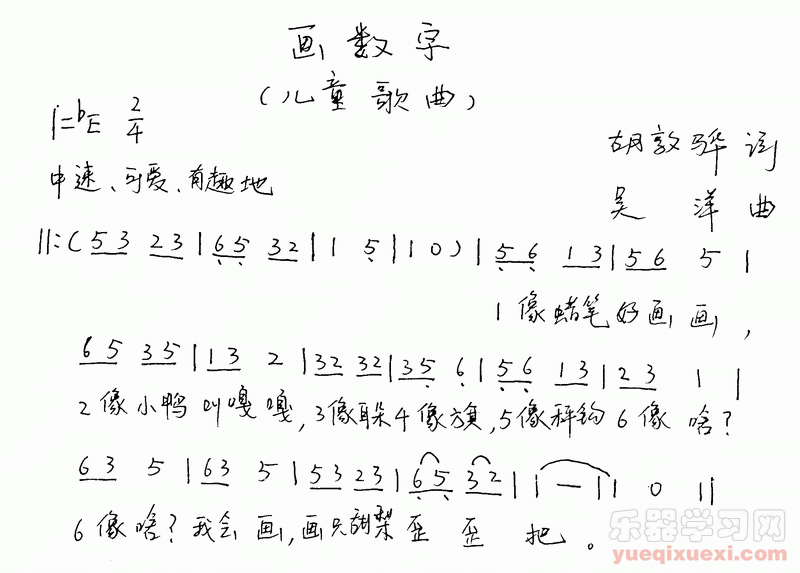 画数字
(儿童歌曲)
1=♭E 2/4
胡敦骅 词
中速、可爱、有趣地
吴 洋 曲
‖:( 5 3 2 3 | 6 5 3 2 | 1 5 | 1 0 ) | 5 6 1 3 | 5 6 5 |
1像蜡笔好画画,
6 5 3 5 | 1 3 2 | 3 2 3 2 | 3 5 6 | 5 6 1 3 | 2 3 1 |
2像小鸭叫嘎嘎,3像耳朵4像旗,5像秤钩6像啥?
6 3 5 | 6 3 5 | 5 3 2 3 | 6 5 3 2 | 1 — | 1 0 ‖
6像啥?我会画,画只甜梨歪歪把。
乐器学习网
yueqixuexi.com